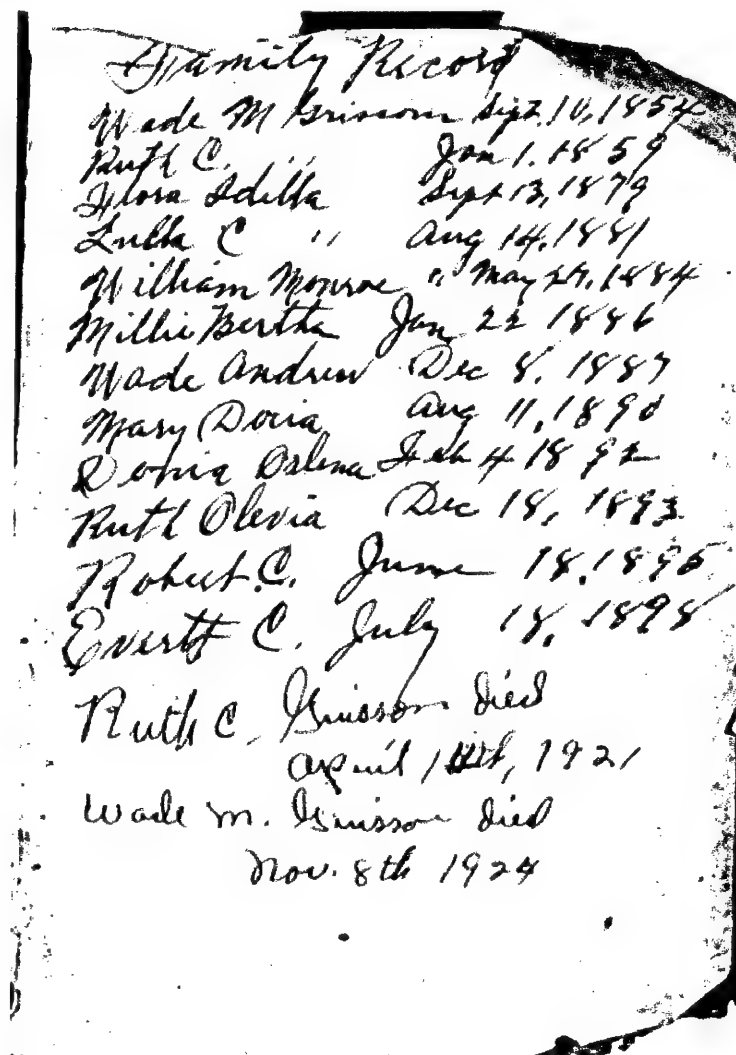 Family Record
Wade M Grissom Sept. 10, 1854
Ruth C. " Jan 1. 1859
Flora Idilla Sept 13, 1879
Lulla C " Aug 14, 1881
William Monroe " May 27, 1884
Millie Bertha Jan 22 1886
Wade Andrew Dec 8, 1887
Mary Doria Aug 11, 1890
Feb 4 1892
Ruth Olevia Dec 18, 1893
Robert C. June 18, 1895
Evertt C. July 18, 1898
Ruth C. Grissom died
April 1921
Wade M. Grissom died
Nov. 8th 1924